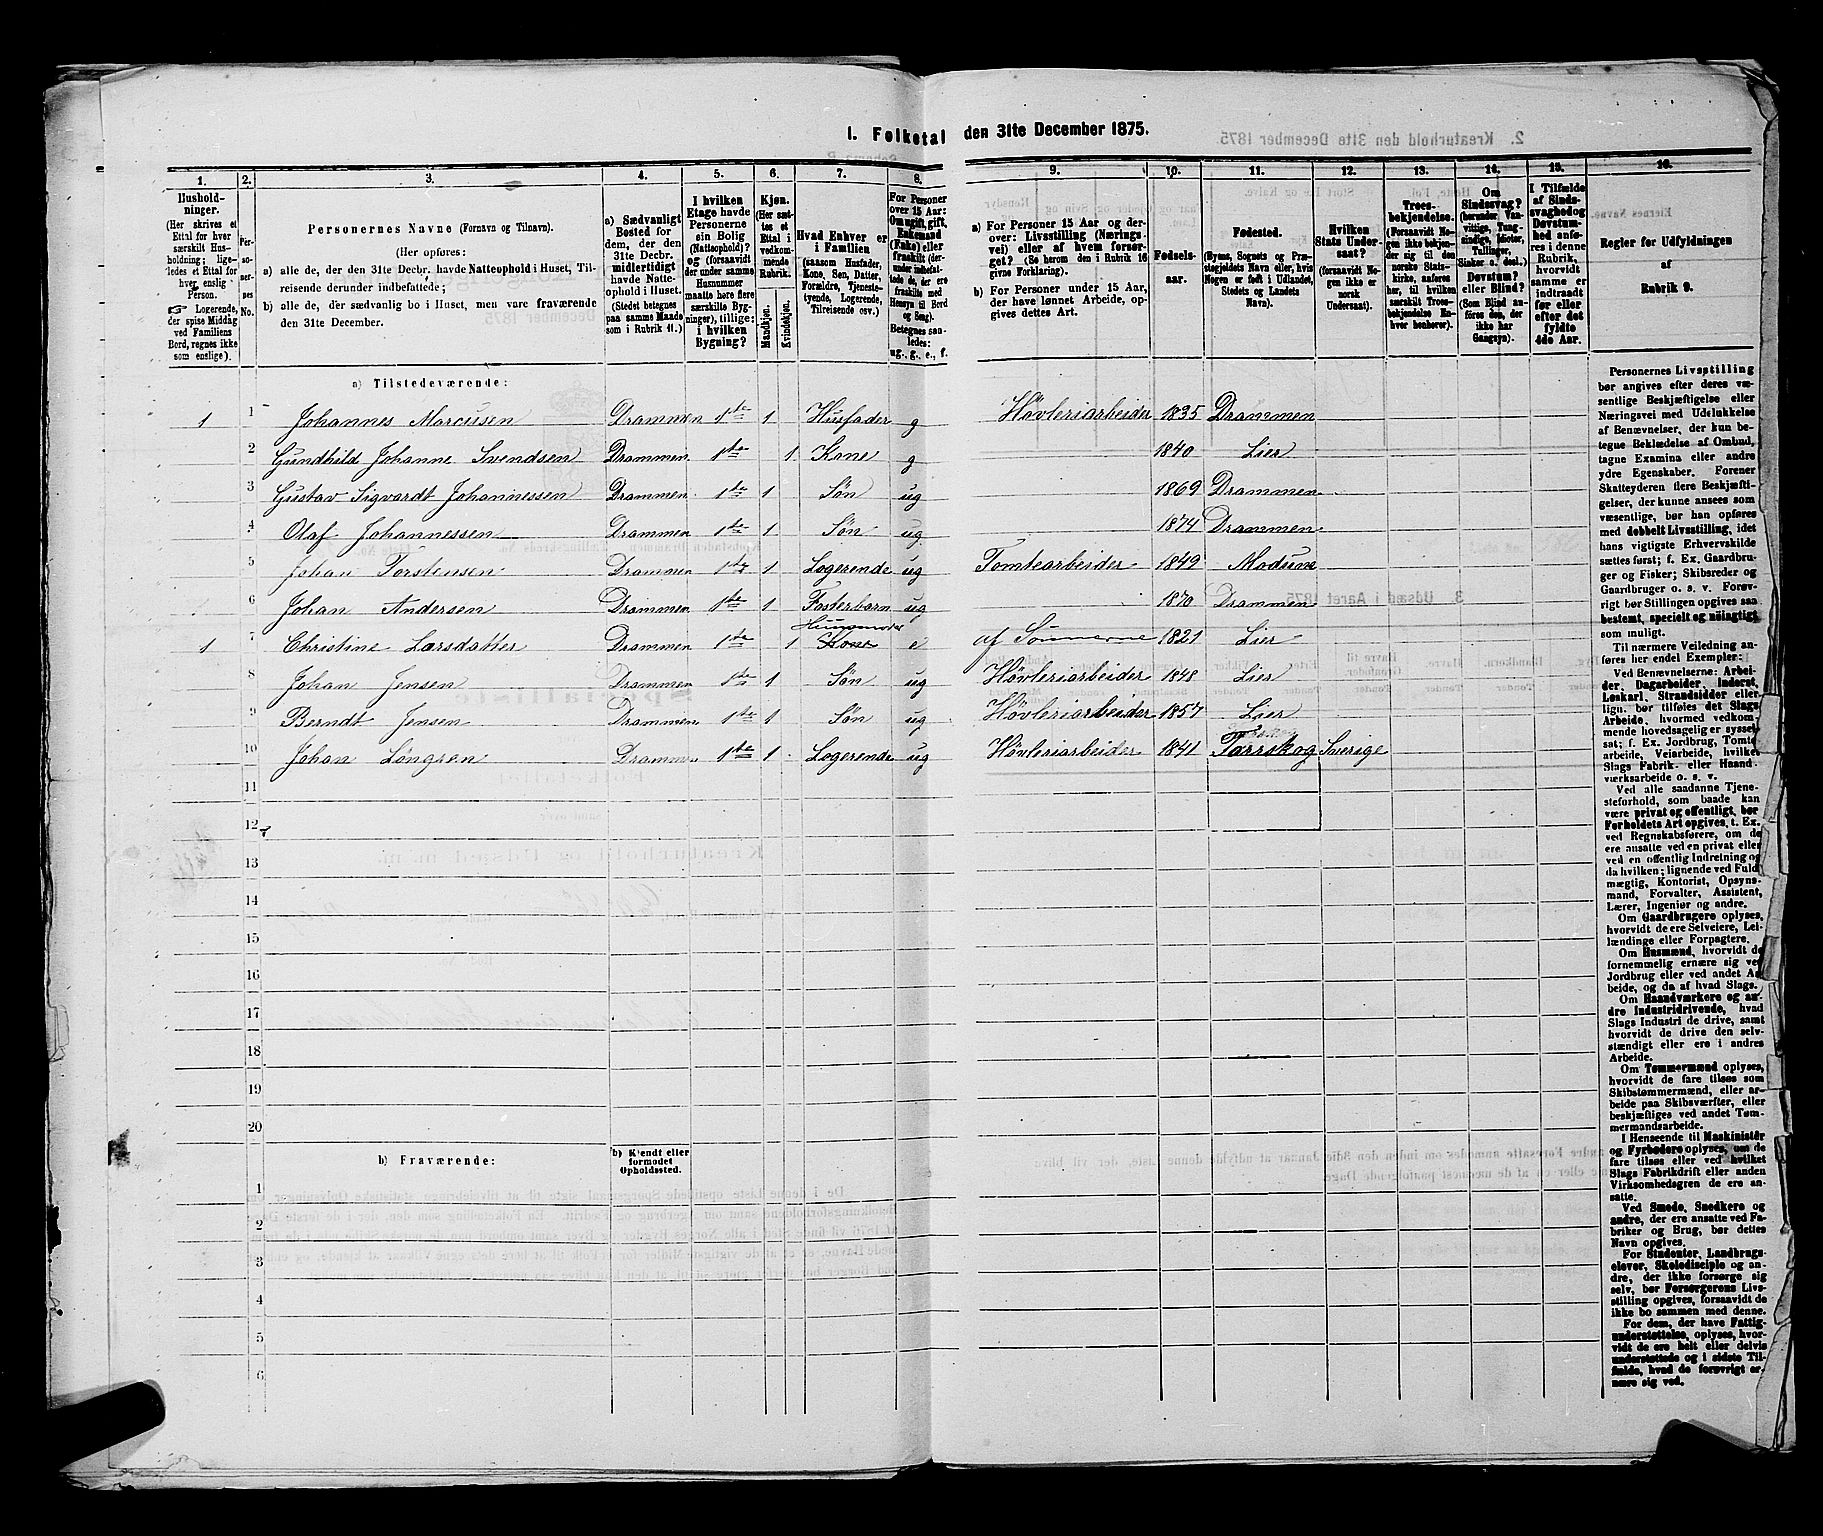 I. Folketal den 31te December 1875.
1. 2. 3. 4. 5. 6. 7. 8. 9. 10. 11. 12. 13. 14. 15. 16.
Husholdninger. (Her skrives et Ettal for hver særskilt Husholdning; ligeledes et Ettal for hver enslig Person. Logerende, der spise Middag ved Familiens Bord, regnes ikke som enslige).
Personernes No.
Personernes Navne (Fornavn og Tilnavn).
(Her opføres:
a) alle de, der den 31te Decbr. havde Natteophold i Huset, Tilreisende derunder indbefattede;
b) alle de, der sædvanlig bo i Huset, men vare fraværende den 31te December.
a) Sædvanligt Bosted for dem, der den 31te Decbr. midlertidigt havde Natteophold i Huset. (Stedet betegnes paa samme Maade som i Rubrik 11.)
I hvilken Etage havde Personerne ein Bolig (Natteophold)? og (forsaavidt der under samme Husnummer maatte høre flere særskilte Bygninger), tillige: i hvilken Bygning?
Kjøn. (Her sættes et Ettal i vedkommende Rubrik. Mandkjøn. Kvindekjøn.
Hvad Enhver er i Familien (saasom Husfader, Kone, Søn, Datter, Forældre, Tjenestetyende, Logerende, Tilreisende osv.)
For Personer over 15 Aar: Om ugift, gift, Enkemand (Enke) eller fraskilt (derunder indbefattede de, der ere fraskilte med Hensyn til Bord og Seng). Betegnes saaledes: ug., g., e., f.
a) For Personer 15 Aar og derover: Livsstilling (Næringsvei) eller af hvem forsørget? (Se herom den i Rubrik 16 givne Forklaring).
b) For Personer under 15 Aar, der have lønnet Arbeide, opgives dettes Art.
Fødselsaar.
Fødested. (Byens, Sognets og Præstegjeldets Navn eller, hvis Nogen er født i Udlandet, Stedets og Landets Navn).
Hvilken Stats Undersaat? (forsaavidt Nogen ikke er norsk Undersaat).
Troesbekjendelse. (Forsaavidt Nogen ikke bekjender sig til den norske Statskirke, anføres her, til hvilken særskilt Troesbekjendelse Enhver henhører).
Om Sindssvag? (herunder Vanvittige, Tungsindige, Idioter, Tullinger, Sinker o. desl.). Døvstum? eller Blind? (Som Blind anføres den, der ikke har Gangsyn).
I Tilfælde af Sindssvaghed og Døvstumhed anføres i denne Rubrik, hvorvidt samme er indtraadt før eller efter det fyldte 4de Aar.
Regler for Udfyldningen af Rubrik 9.
a) Tilstedeværende:
1 1 Johannes Marcusen Drammen 1ste 1 Husfader g Høvleriarbeider 1835 Drammen
2 Gundhild Johanne Svendsen Drammen 1ste 1 Kone g 1840 Lier
3 Gustav Sigvardt Johannessen Drammen 1ste 1 Søn ug 1869 Drammen
4 Olaf Johannessen Drammen 1ste 1 Søn ug 1874 Drammen
5 Johan Torstensen Drammen 1ste 1 Logerende ug Tomtearbeider 1849 Modum
6 Johan Andersen Drammen 1ste 1 Fosterbarn ug 1870 Drammen
Huusmoder
1 7 Christine Larsdatter Drammen 1ste 1 Kone e af Sønnerne 1821 Lier
8 Johan Jensen Drammen 1ste 1 Søn ug Høvleriarbeider 1848 Lier
9 Berndt Jensen Drammen 1ste 1 Søn ug Høvleriarbeider 1857 Lier
10 Johan Løngren Drammen 1ste 1 Logerende ug Høvleriarbeider 1841 Tarrskog Sverige
11
12
13
14
15
16
17
18
19
20
b) Fraværende:
b) Kjendt eller formodet Opholdssted.
1
2
3
4
5
6
Personernes Livsstilling
bør angives efter deres væ-
sentlige Beskjæftigelse eller
Næringsvei med Udelukkelse
af Benævnelser, der kun be-
tegne Beklædelse af Ombud,
tagne Examina eller andre
ydre Egenskaber. Forener
Skatteyderen flere Beskjæfti-
gelser, der kunne ansees som
væsentlige, bør han opføres
med dobbelt Livsstilling, idet
hans vigtigste Erhvervskilde
sættes først; f. Ex. Gaardbru-
ger og Fisker; Skibsreder og
Gaardbruger o. s. v. Forøv-
rigt bør Stillingen opgives saa
bestemt, specielt og nøiagtigt
som muligt.
Til nærmere Veiledning an-
føres her endel Exempler:
Ved Benævnelserne: Arbei-
der, Dagarbeider, Inderst,
Løskarl, Strandsidder eller
lign. bør tilføies det Slags
Arbeide, hvormed vedkom-
mende hovedsagelig er syssel-
sat; f. Ex. Jordbrug, Tomte-
arbeide, Veiarbeide, hvilket
Slags Fabrik- eller Haand-
værksarbeide o. s. v.
Ved alle saadanne Tjene-
steforhold, som baade kan
være privat og offentligt, bør
Forholdets Art opgives, f. Ex.
ved Regnskabsførere, om de
ere ansatte ved en privat eller
ved en offentlig Indretning og
da hvilken; lignende ved Fuld-
mægtig, Kontorist, Opsyns-
mand, Forvalter, Assistent,
Lærer, Ingeniør og andre.
Om Gaardbrugere oplyses,
hvorvidt de ere Selveiere, Lei-
lændinge eller Forpagtere.
Om Husmænd, hvorvidt de
fornemmelig ernære sig ved
Jordbrug eller ved andet Ar-
beide, og da af hvad Slags.
Om Haandværkere og an-
dre Industridrivende, hvad
Slags Industri de drive, samt
hvorvidt de drive den selv-
stændigt eller ere i andres
Arbeide.
Om Tømmermænd oplyses,
hvorvidt de fare tilsøs som
Skibstømmermænd, eller ar-
beide paa Skibsværfter, eller
beskjæftiges ved andet Tøm-
mermandsarbeide.
I Henseende til Maskinister
og Fyrbødere oplyses, om de
fare tilsøs eller ved hvilket
Slags Fabrikdrift eller anden
Virksomhedsgren de ere an-
satte.
Ved Smede, Snedkere og
andre, der ere ansatte ved Fa-
briker og Brug, bør dettes
Navn opgives.
For Studenter, Landbrugs-
elever, Skoledisciple og an-
dre, der ikke forsørge sig
selv, bør Forsørgerens Livs-
stilling opgives, forsaavidt de
ikke bo sammen med denne.
For dem, der have Fattig-
understøttelse, oplyses, hvor-
vidt de ere helt eller delvis
understøttede og i sidste Til-
fælde, hvad de forøvrigt er-
nære sig ved.